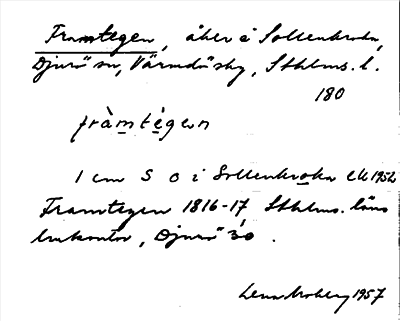 Framtegen, åker i Sollenkroka,
Djurö sn, Värmdö sky, Sthlms. l.
180
fràmtégen
1 cm S O i Sollenkroka EK 1952
Framtegen 1816-17, Sthlms. läns
lmkontor, Djurö 30.
1957